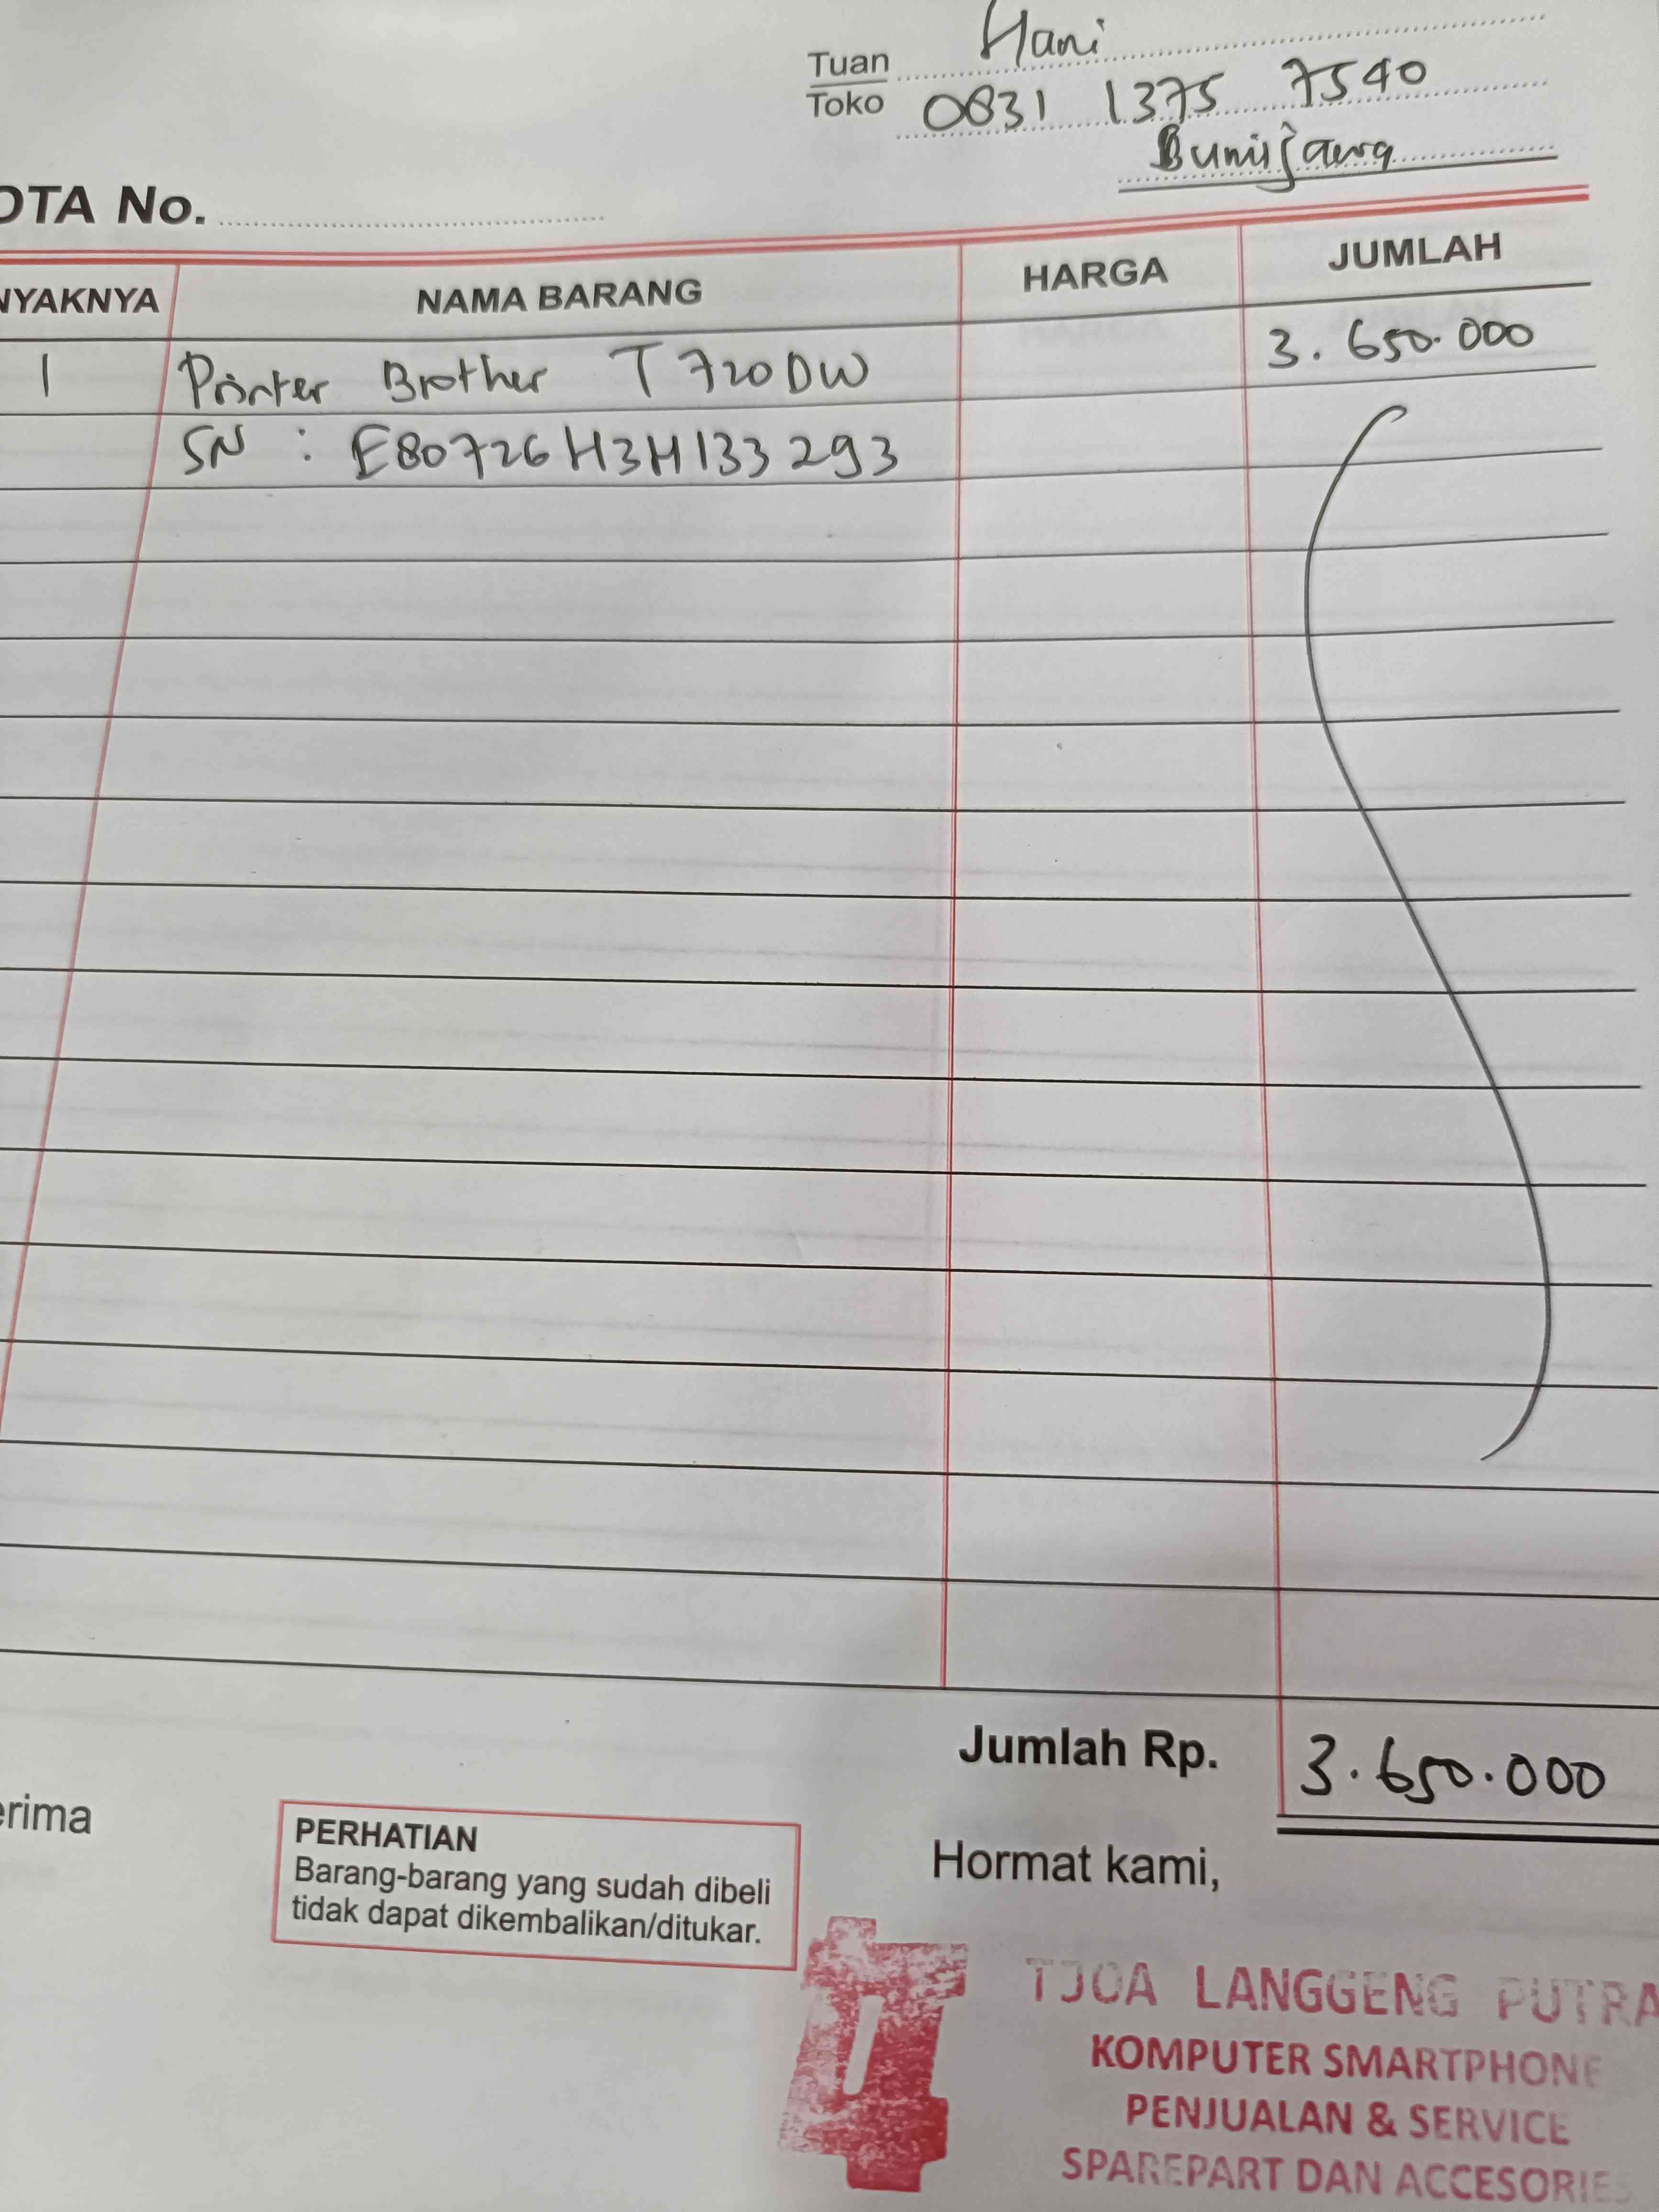 Tuan Hani
Toko 0831 1375 7540
Bumijawa
OTA No.
NYAKNYA NAMA BARANG HARGA JUMLAH
1 Printer Brother T720DW 3.650.000
SN : E80726H3H133293
Jumlah Rp. 3.650.000
erima
PERHATIAN
Barang-barang yang sudah dibeli
tidak dapat dikembalikan/ditukar.
Hormat kami,
TJOA LANGGENG PUTRA
KOMPUTER SMARTPHONE
PENJUALAN & SERVICE
SPAREPART DAN ACCESORIES